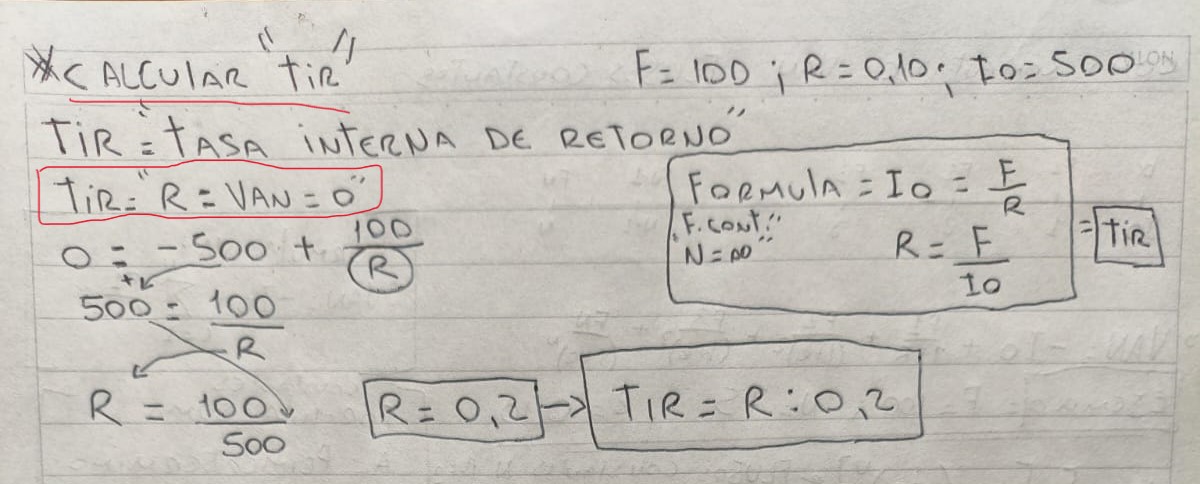 *CALCULAR "TIR"
F= 100 ; R= 0,10 ; I0= 500
TIR = "TASA INTERNA DE RETORNO"
TIR= "R = VAN = 0"
0 = - 500 + 100/R
+
500 = 100/R
R = 100/500
R= 0,2 → TIR = R : 0,2
FORMULA = I0 = F/R
"F. CONT."
N= ∞"
R= F/I0
= TIR